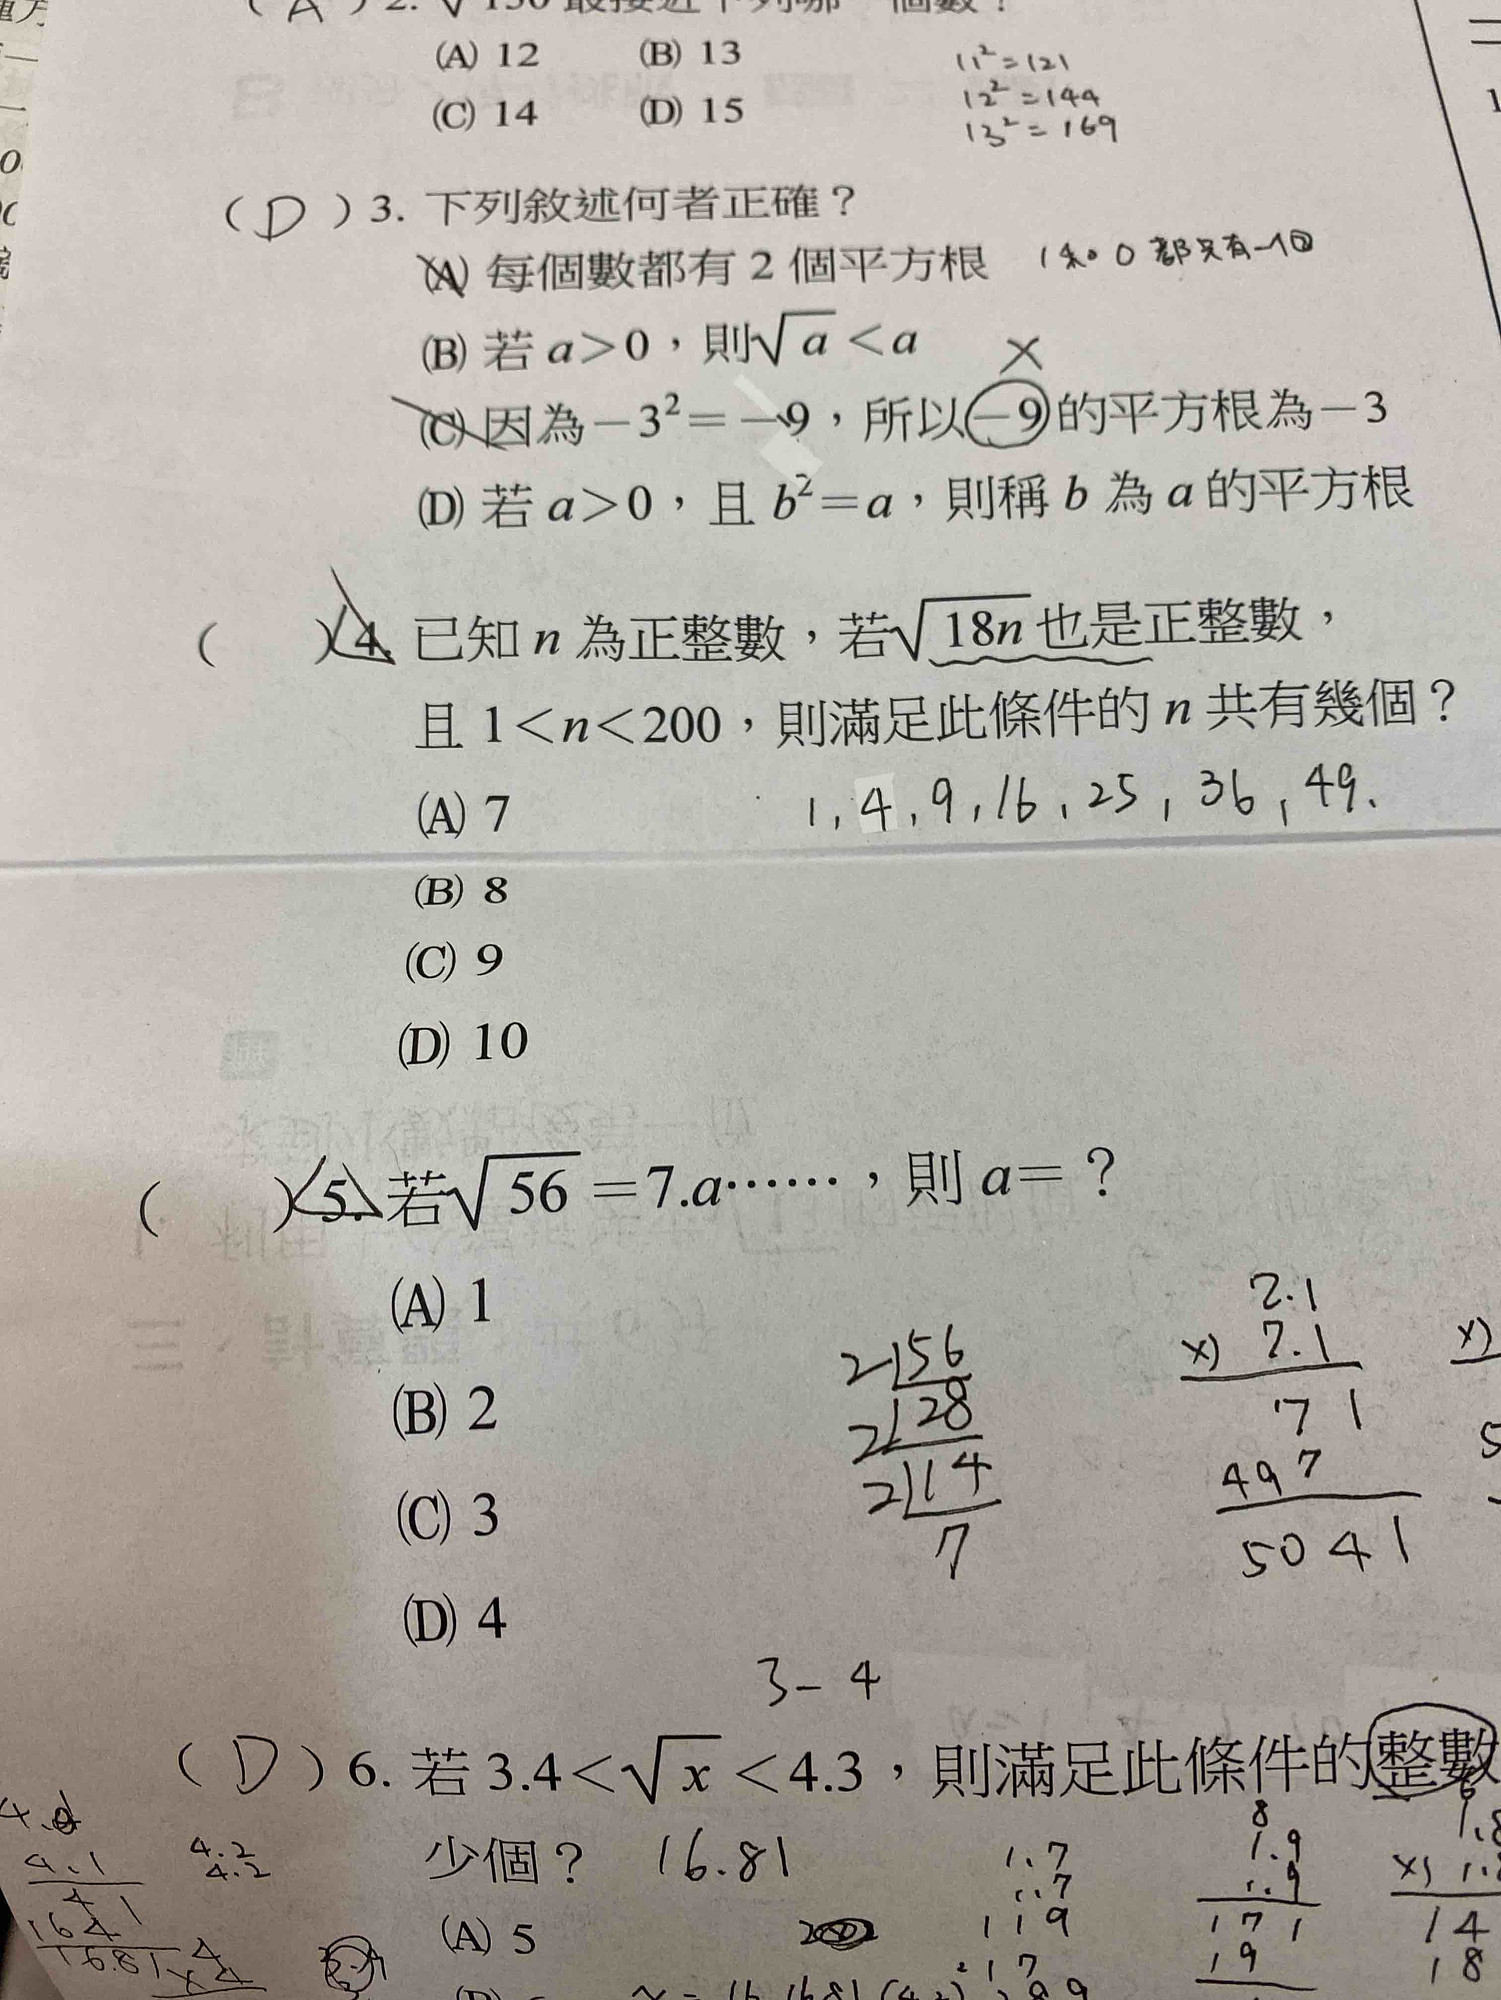 ( A ) 2. √150 最接近下列哪一個數?
(A) 12 (B) 13
(C) 14 (D) 15
11² = 121
12² = 144
13² = 169
( D ) 3. 下列敘述何者正確?
(A) 每個數都有 2 個平方根 1和0都只有一個
(B) 若 a>0,則√a<a ×
(C) 因為 −3²=−9,所以 −9 的平方根為 −3
(D) 若 a>0,且 b²=a,則稱 b 為 a 的平方根
( ) 4. 已知 n 為正整數,若√18n 也是正整數,
且 1<n<200,則滿足此條件的 n 共有幾個?
(A) 7 1, 4, 9, 16, 25, 36, 49.
(B) 8
(C) 9
(D) 10
( ) 5. 若√56=7.a……,則 a=?
(A) 1
(B) 2
(C) 3
(D) 4
2 56
2 28
2 14
7
7.1
×) 7.1
71
497
5041
×)
5
3 - 4
( D ) 6. 若 3.4<√x<4.3,則滿足此條件的整數
少個? 16.81
(A) 5
4.1
41
164
16.81
4
×4
4.2
4.2
1.7
1.7
119
17
8
1.9
1.9
171
19
1.8
×)
14
18